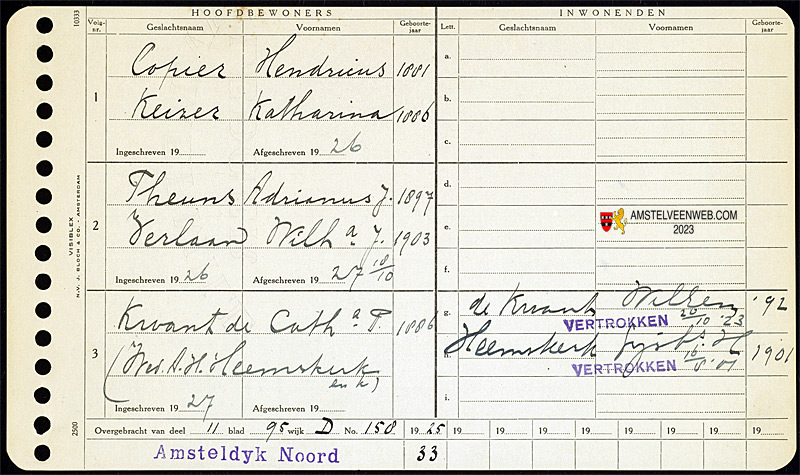 HOOFDBEWONERS
INWONENDEN
10333
Volg-nr. Geslachtsnaam Voornamen Geboorte-jaar
Lett. Geslachtsnaam Voornamen Geboorte-jaar
1
Copier Hendricus 1881
Keizer Katharina 1886
Ingeschreven 19 Afgeschreven 19 26
2
Theuns Adrianus J. 1897
Verlaan Wilh a J. 1903
Ingeschreven 19 26 Afgeschreven 19 27 18/10
3
Kwant de Cath a P. 1886
(Wed. A. H. Heemskerk
en k)
Ingeschreven 19 27 Afgeschreven 19
a.
b.
c.
d.
e.
f.
AMSTELVEENWEB.COM
2023
g. de Kwant '92
VERTROKKEN 20/10 '23
h. Heemskerk 1901
VERTROKKEN
i.
VISIBLEX
N.V. J. BLOCH & CO. AMSTERDAM
2500
Overgebracht van deel 11 blad 95 wijk D No. 158 19 25 19 19 19 19 19 19
Amsteldyk Noord 33